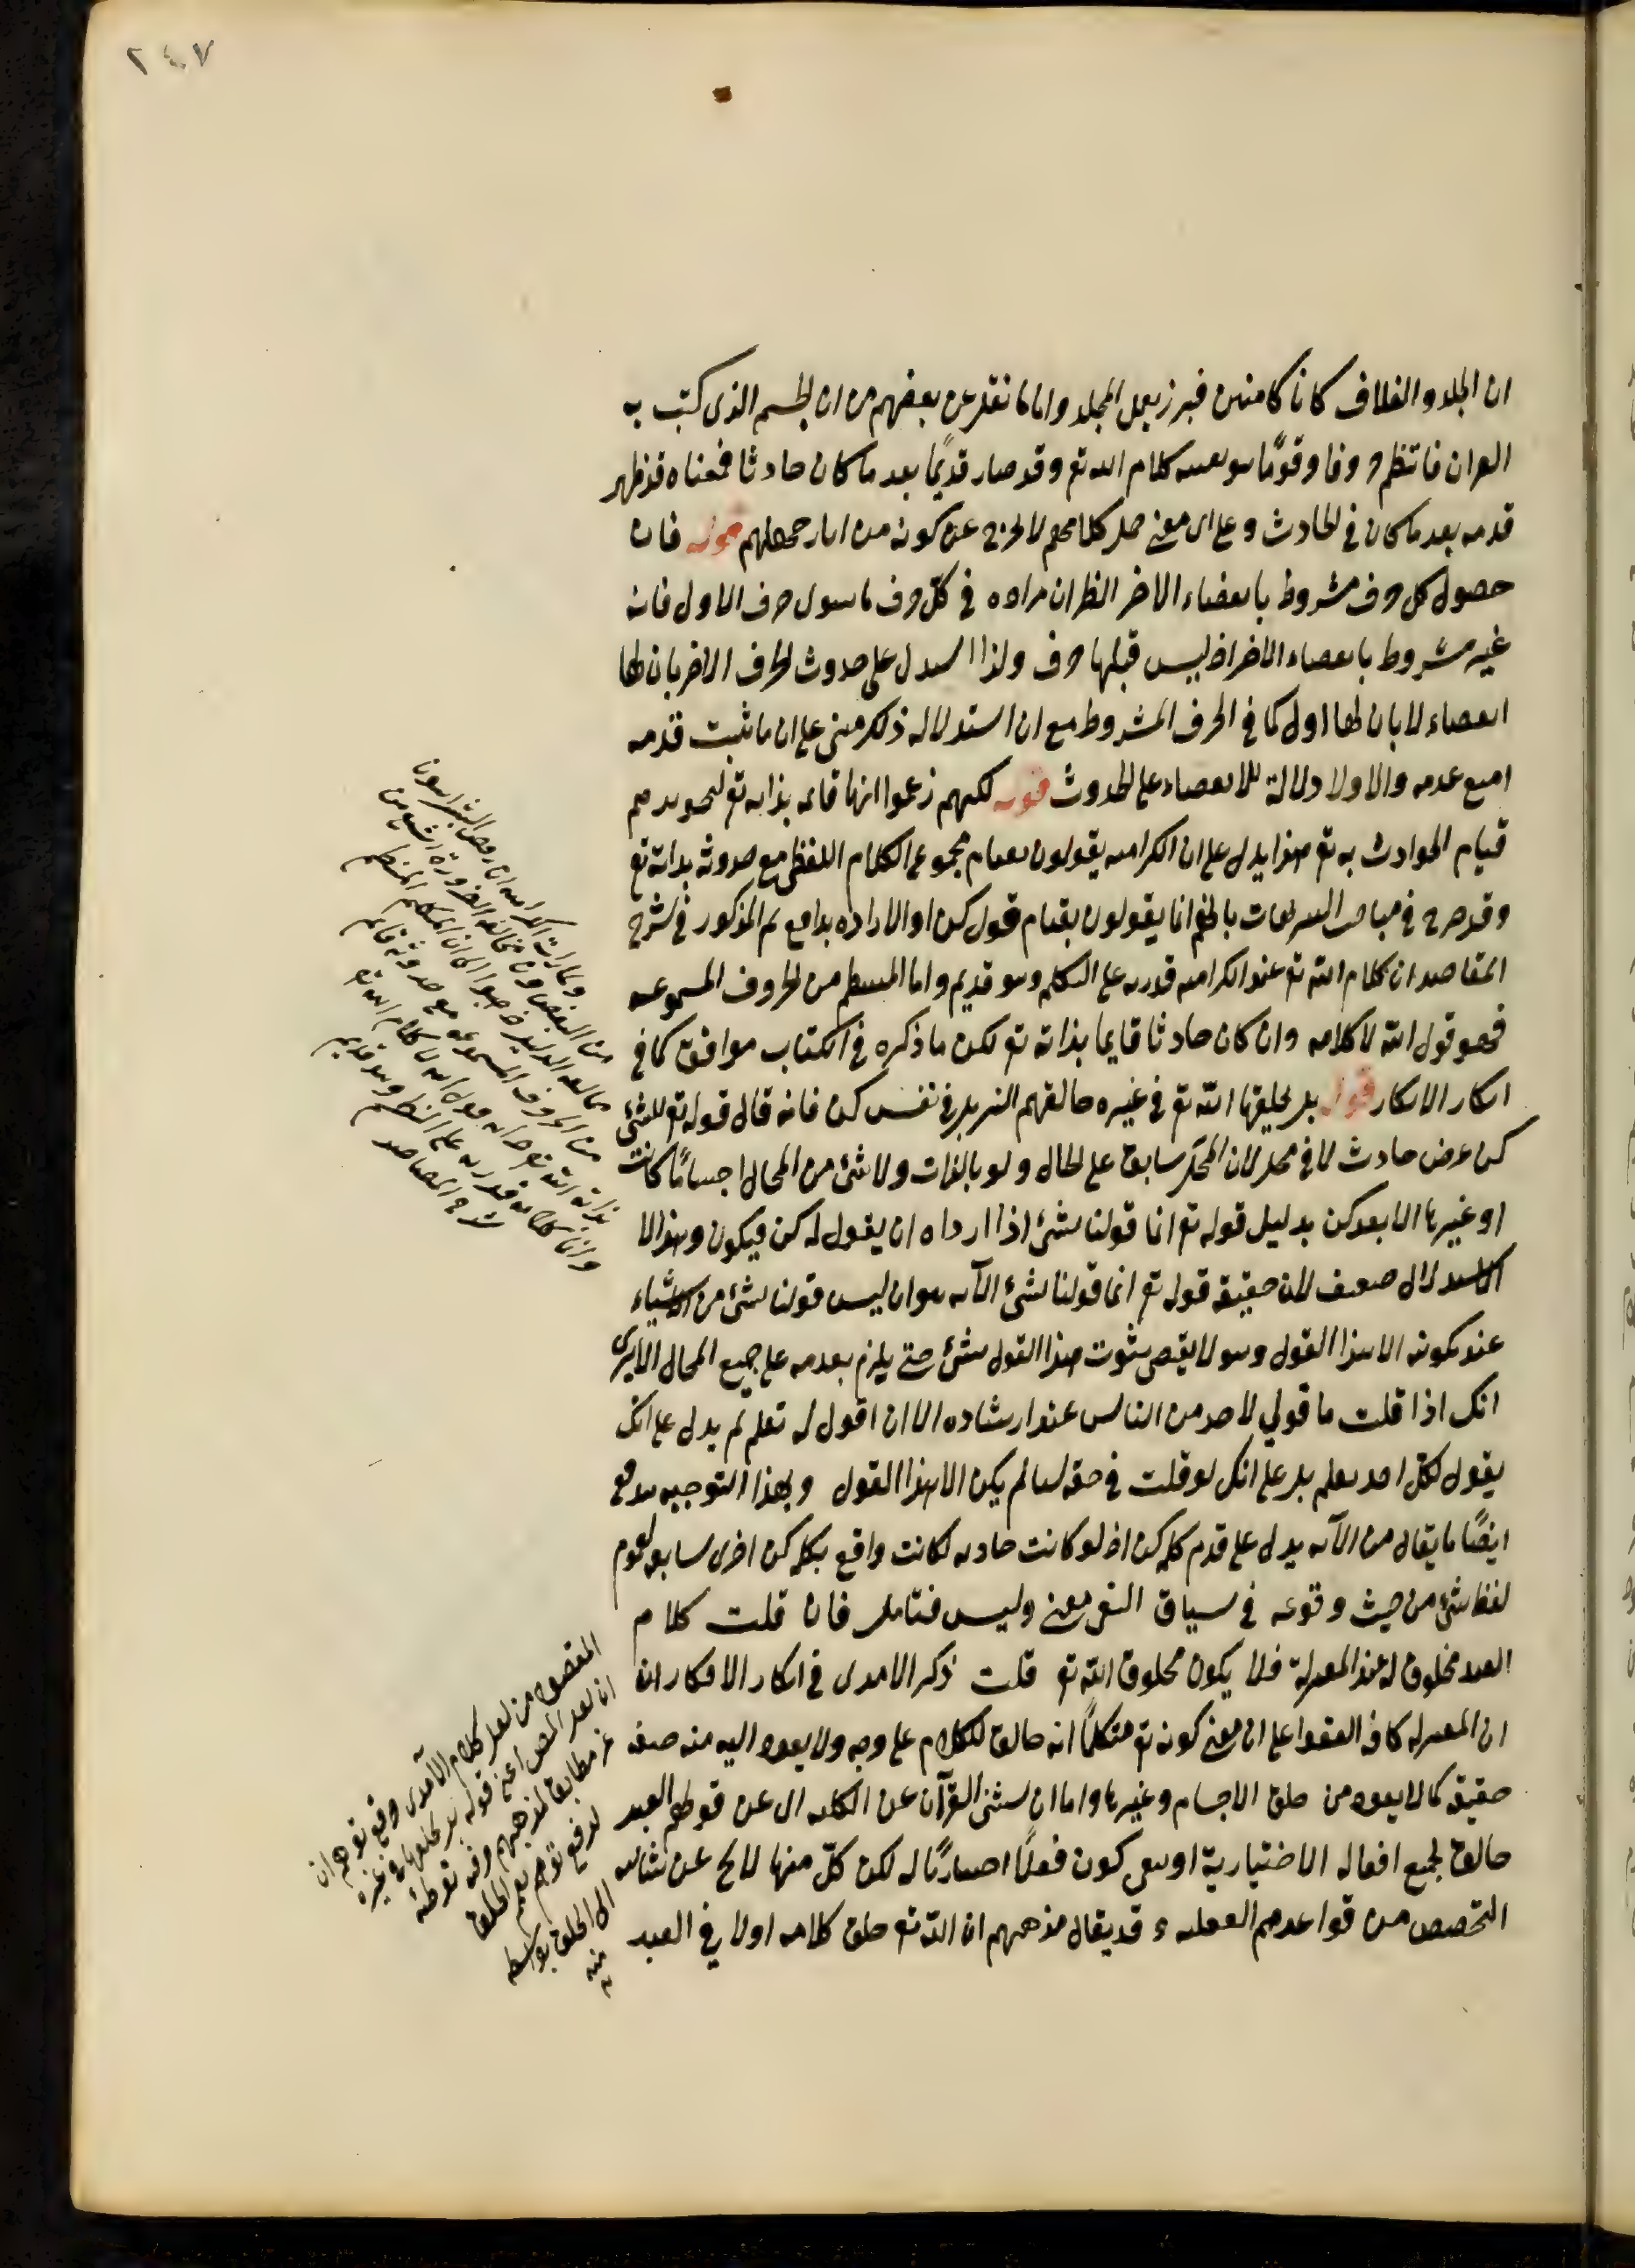 ٢٤٧
ان الجلد والغلاف كانا كامنين فبرز بعمل المجلد واما ما نقل عن بعضهم من ان الجسم الذى كتب به
القران فانتظم حروفا ورقوما هو بعينه كلام الله تع وقد صار قديما بعد ما كان حادثا فمعناه قد ظهر
قدمه بعد ما كان فى الحادث وعلى اى معنى حمل كلامهم لا يخرج عن كونه من اثار جهلهم قوله فان
حصول كل حرف مشروط بانقضاء الاخر الظ ان مراده فى كل حرف ما سوى حرف الاول فانه
غير مشروط بانقضاء الاخر اذ ليس قبلها حرف ولذا استدل على حدوث الحرف الاخر بان لها
انقضاء لا بان لها اول كما فى الحرف المشروط مع ان استدلاله ذلك مبنى على ان ما ثبت قدمه
امتنع عدمه والا ولا دلالة للانقضاء على الحدوث قوله لكنهم زعموا انها قائمه بذاته تع لتجويزهم
قيام الحوادث به تع هذا يدل على ان الكراميه يقولون بقيام مجموع الكلام اللفظى مع حدوثه بذاته تع
وقد صرح فى مباحث التنزيهات بانهم انما يقولون بقيام قول كن او الارادة بذاته تع ثم المذكور فى شرح
المقاصد ان كلام الله تع عند الكراميه قدرته على التكلم وهو قديم واما المنتظم من الحروف المسموعه
فهو قول الله لا كلامه وان كان حادثا قايما بذاته تع لكن ما ذكره فى الكتاب موافق كما فى
ابكار الافكار قوله بل يخلقها الله تع فى غيره خالفهم ابو الهذيل فى نفس كن فانه قال قوله تع للشئ
كن عرض حادث لا فى محل لان المحل سابق على الحال ولو بالذات ولا شئ من المحال اجساما كانت
او غيرها الا بعد كن بدليل قوله تع انما قولنا لشئ اذا اردناه ان يقول له كن فيكون وهذا الا
الاستدلال ضعيف لان حقيقة قوله تع انما قولنا لشئ الآيه هو ان ليس قولنا لشئ من الاشياء
عند تكونه الا هذا القول وهو لا يقتضى ثبوت هذا القول لشئ حتى يلزم تقدمه على جميع المحال الا يرى
انك اذا قلت ما قولي لاحد من الناس عند ارشاده الا ان اقول له تعلم لم يدل على انك
يقول لكل احد تعلم بل على انك لو قلت فى حقه شيئا لم يكن الا هذا القول وبهذا التوجيه يندفع
ايضا ما يقال من الآيه يدل على قدم كلمه كن اذ لو كانت حادثه لكانت واقع بكلمه كن اخرى سابقه لعموم
لفظ شئ من حيث وقوعه فى سياق النفى معنى وليس فتامل فان قلت كلام
العبد مخلوق له عند المعتزلة فلا يكون مخلوق الله تع قلت ذكر الامدى فى ابكار الافكار ان
ان المعتزله كافه اتفقوا على ان معنى كونه تع متكلما انه خالق للكلام على وجه ولا يعود اليه منه صفه
حقيقة كما لا يعود من خلق الاجسام وغيرها واما ان يستثنى القرآن عن الكليه اى عن قولهم العبد
خالق لجميع افعاله الاختيارية او ينفى كون فعلا اختياريا له لكن كل منها لا يخ عن شائبه
التخصيص من قواعدهم العقليه وقد يقال مذهبهم ان الله تع خلق كلامه اولا فى العبد
ولما رات الكراميه ان بعض الشر اهون
من البعض وان مخالفة الضرورة اشنع من
مخالفه الدليل ذهبوا الى ان المتكلم المنتظم
من الحروف المسموعه مع حدوثه قايم
بذاته الله تع وانه قول الله لا كلام الله تع
وانما كلامه قدرته على التكلم وهو قديم
شرح المقاصد
المقصود من نقل كلام الآمدى دفع توهم ان
ان نقل المص اعنى قوله بل يخلقها فى غيره
غير مطابق لمذهبهم وفيه توطئه
لدفع توهم بعمم الخلق
الى الخلق بواسطه
منه